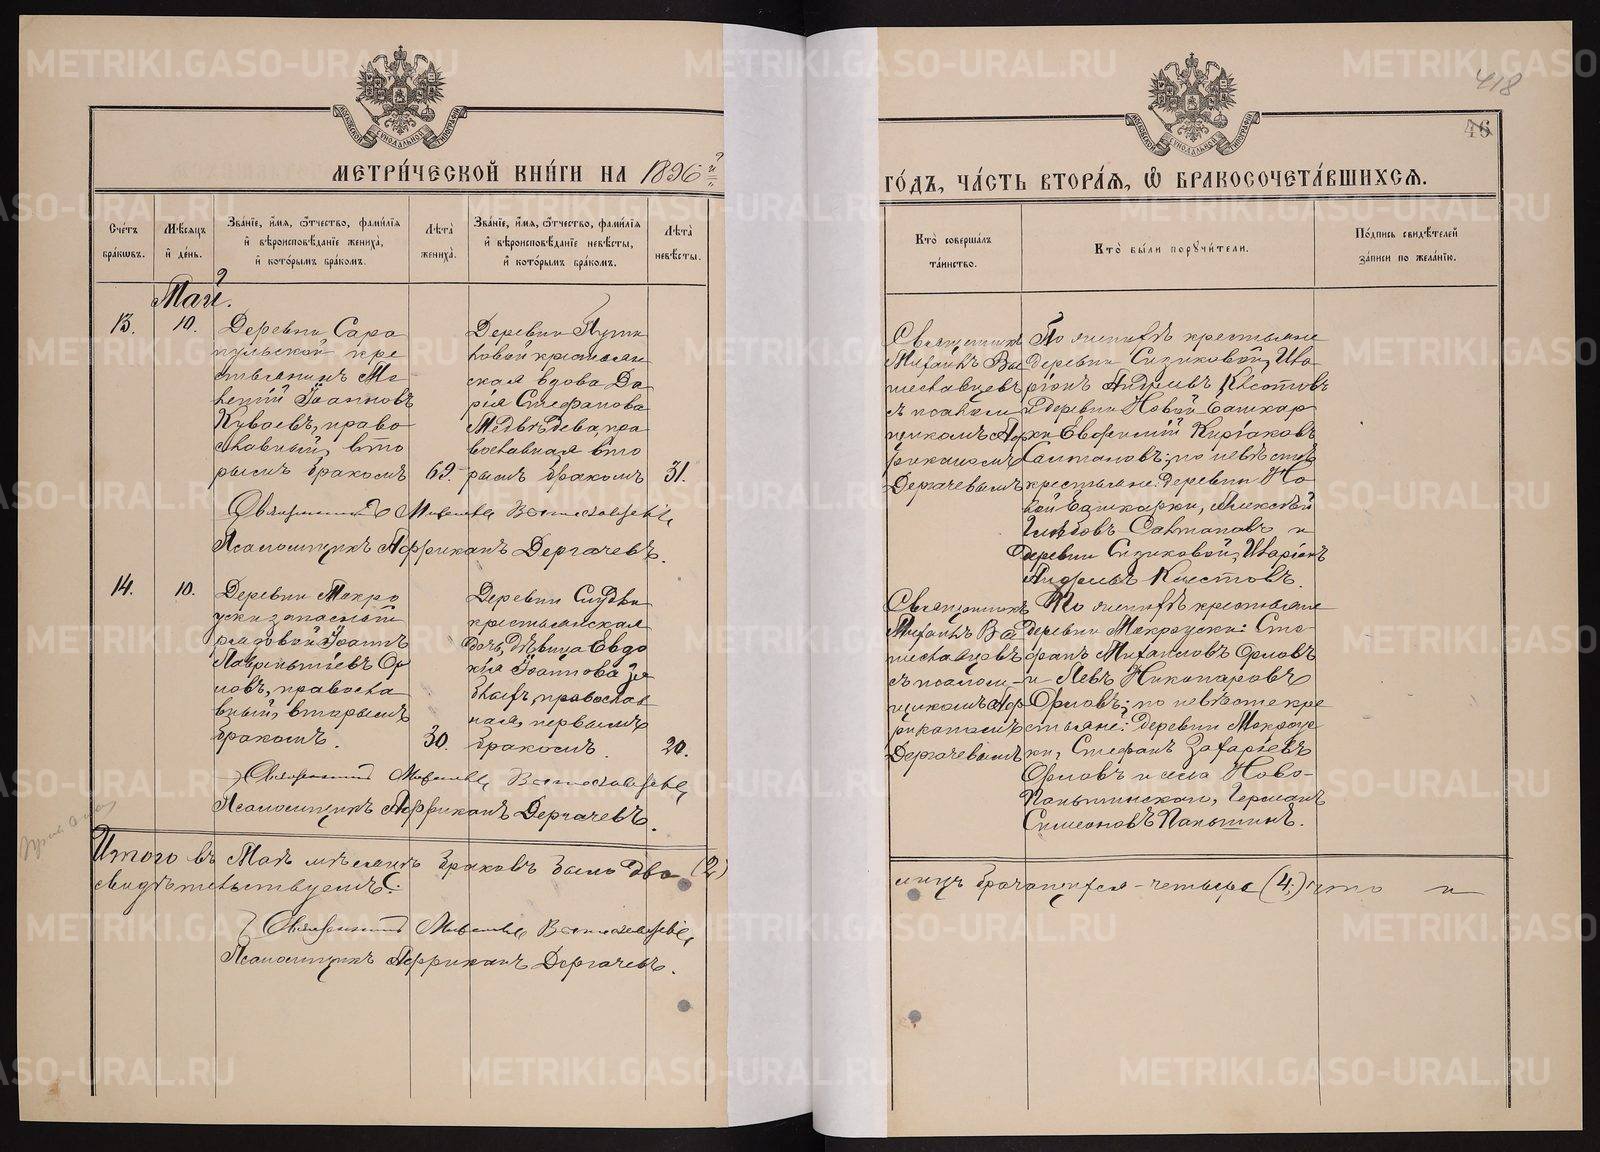 METRIKI.GASO-URAL.RU
418
46
МОСКОВСКОЙ СѴНОДАЛЬНОЙ ТИПОГРАФІИ
МЕТРИ́ЧЕСКОЙ КНИ́ГИ НА 1896 й
ГО́ДЪ, ЧА́СТЬ ВТОРА́Я, Ѽ БРАКОСОЧЕТА́ВШИХСЯ.
Сче́тъ бра́кѡвъ.
Мѣ́сяцъ и҆ де́нь.
Зва́нїе, и҆́мя, ѻ҆́тчество, фами́лїя и҆ вѣроисповѣ́данїе жениха̀, и҆ кото́рымъ бра́комъ.
Лѣ́та жениха̀.
Зва́нїе, и҆́мя, ѻ҆́тчество, фами́лїя и҆ вѣроисповѣ́данїе невѣ́сты, и҆ кото́рымъ бра́комъ.
Лѣ́та невѣ́сты.
Кто̀ соверша́лъ та́инство.
Кто̀ бы́ли порꙋчи́тели.
По́дпись свидѣ́телей за́писи по жела́нїю.
Май.
13.
10.
Деревни Сара
пульской кре
стьянинъ Ме
летій Іоанновъ
Куваевъ, право
славный, вто
рымъ бракомъ
69.
Деревни
ловой крестьян
ская вдова Да
рія Стефанова
Медвѣдева, пра
вославная вто
рымъ бракомъ
31.
Священникъ
Михаилъ Во
тославцевъ
съ псалом
щикомъ Аф
риканомъ
Дергачевымъ
По женихѣ крестьяне
деревни Сизиковой, Ила
ріонъ Андреевъ
и деревни Новой Башкар
ки Евфимій Киріаковъ
Салтановъ; по невѣстѣ
крестьяне: деревни Но
вой Башкарки, Алексѣй
Глѣбовъ Салтановъ и
деревни Сизиковой, Иларіонъ
Андреевъ
Священникъ Михаилъ Вотославцевъ
Псаломщикъ Африканъ Дергачевъ.
14.
10.
Деревни Мокро
уски запасный
рядовой Іоаннъ
Лаврентьевъ Ор
ловъ, правосла
вный, вторымъ
бракомъ.
30.
Деревни
крестьянская
дочь, дѣвица Евдо
кія Іоаннова
православ
ная, первымъ
бракомъ.
20.
Священникъ
Михаилъ Во
тославцевъ
съ псалом-
щикомъ Аф
риканомъ
Дергачевымъ
По женихѣ крестьяне
деревни Мокроуски: Сте
фанъ Михаиловъ Орловъ
и Левъ Никаноровъ
Орловъ; по невѣстѣ кре
стьяне: деревни Мокроус
ки, Стефанъ Захаріевъ
Орловъ и села Ново-
Паньшинскаго, Германъ
Симеоновъ Паньшинъ.
Священникъ Михаилъ Вотославцевъ
Псаломщикъ Африканъ Дергачевъ.
Итого въ Маѣ мѣсяцѣ браковъ было два (2)
лицъ брачащихся - четыре (4.) что и
свидѣтельствуемъ:
Священникъ Михаилъ Вотославцевъ
Псаломщикъ Африканъ Дергачевъ.